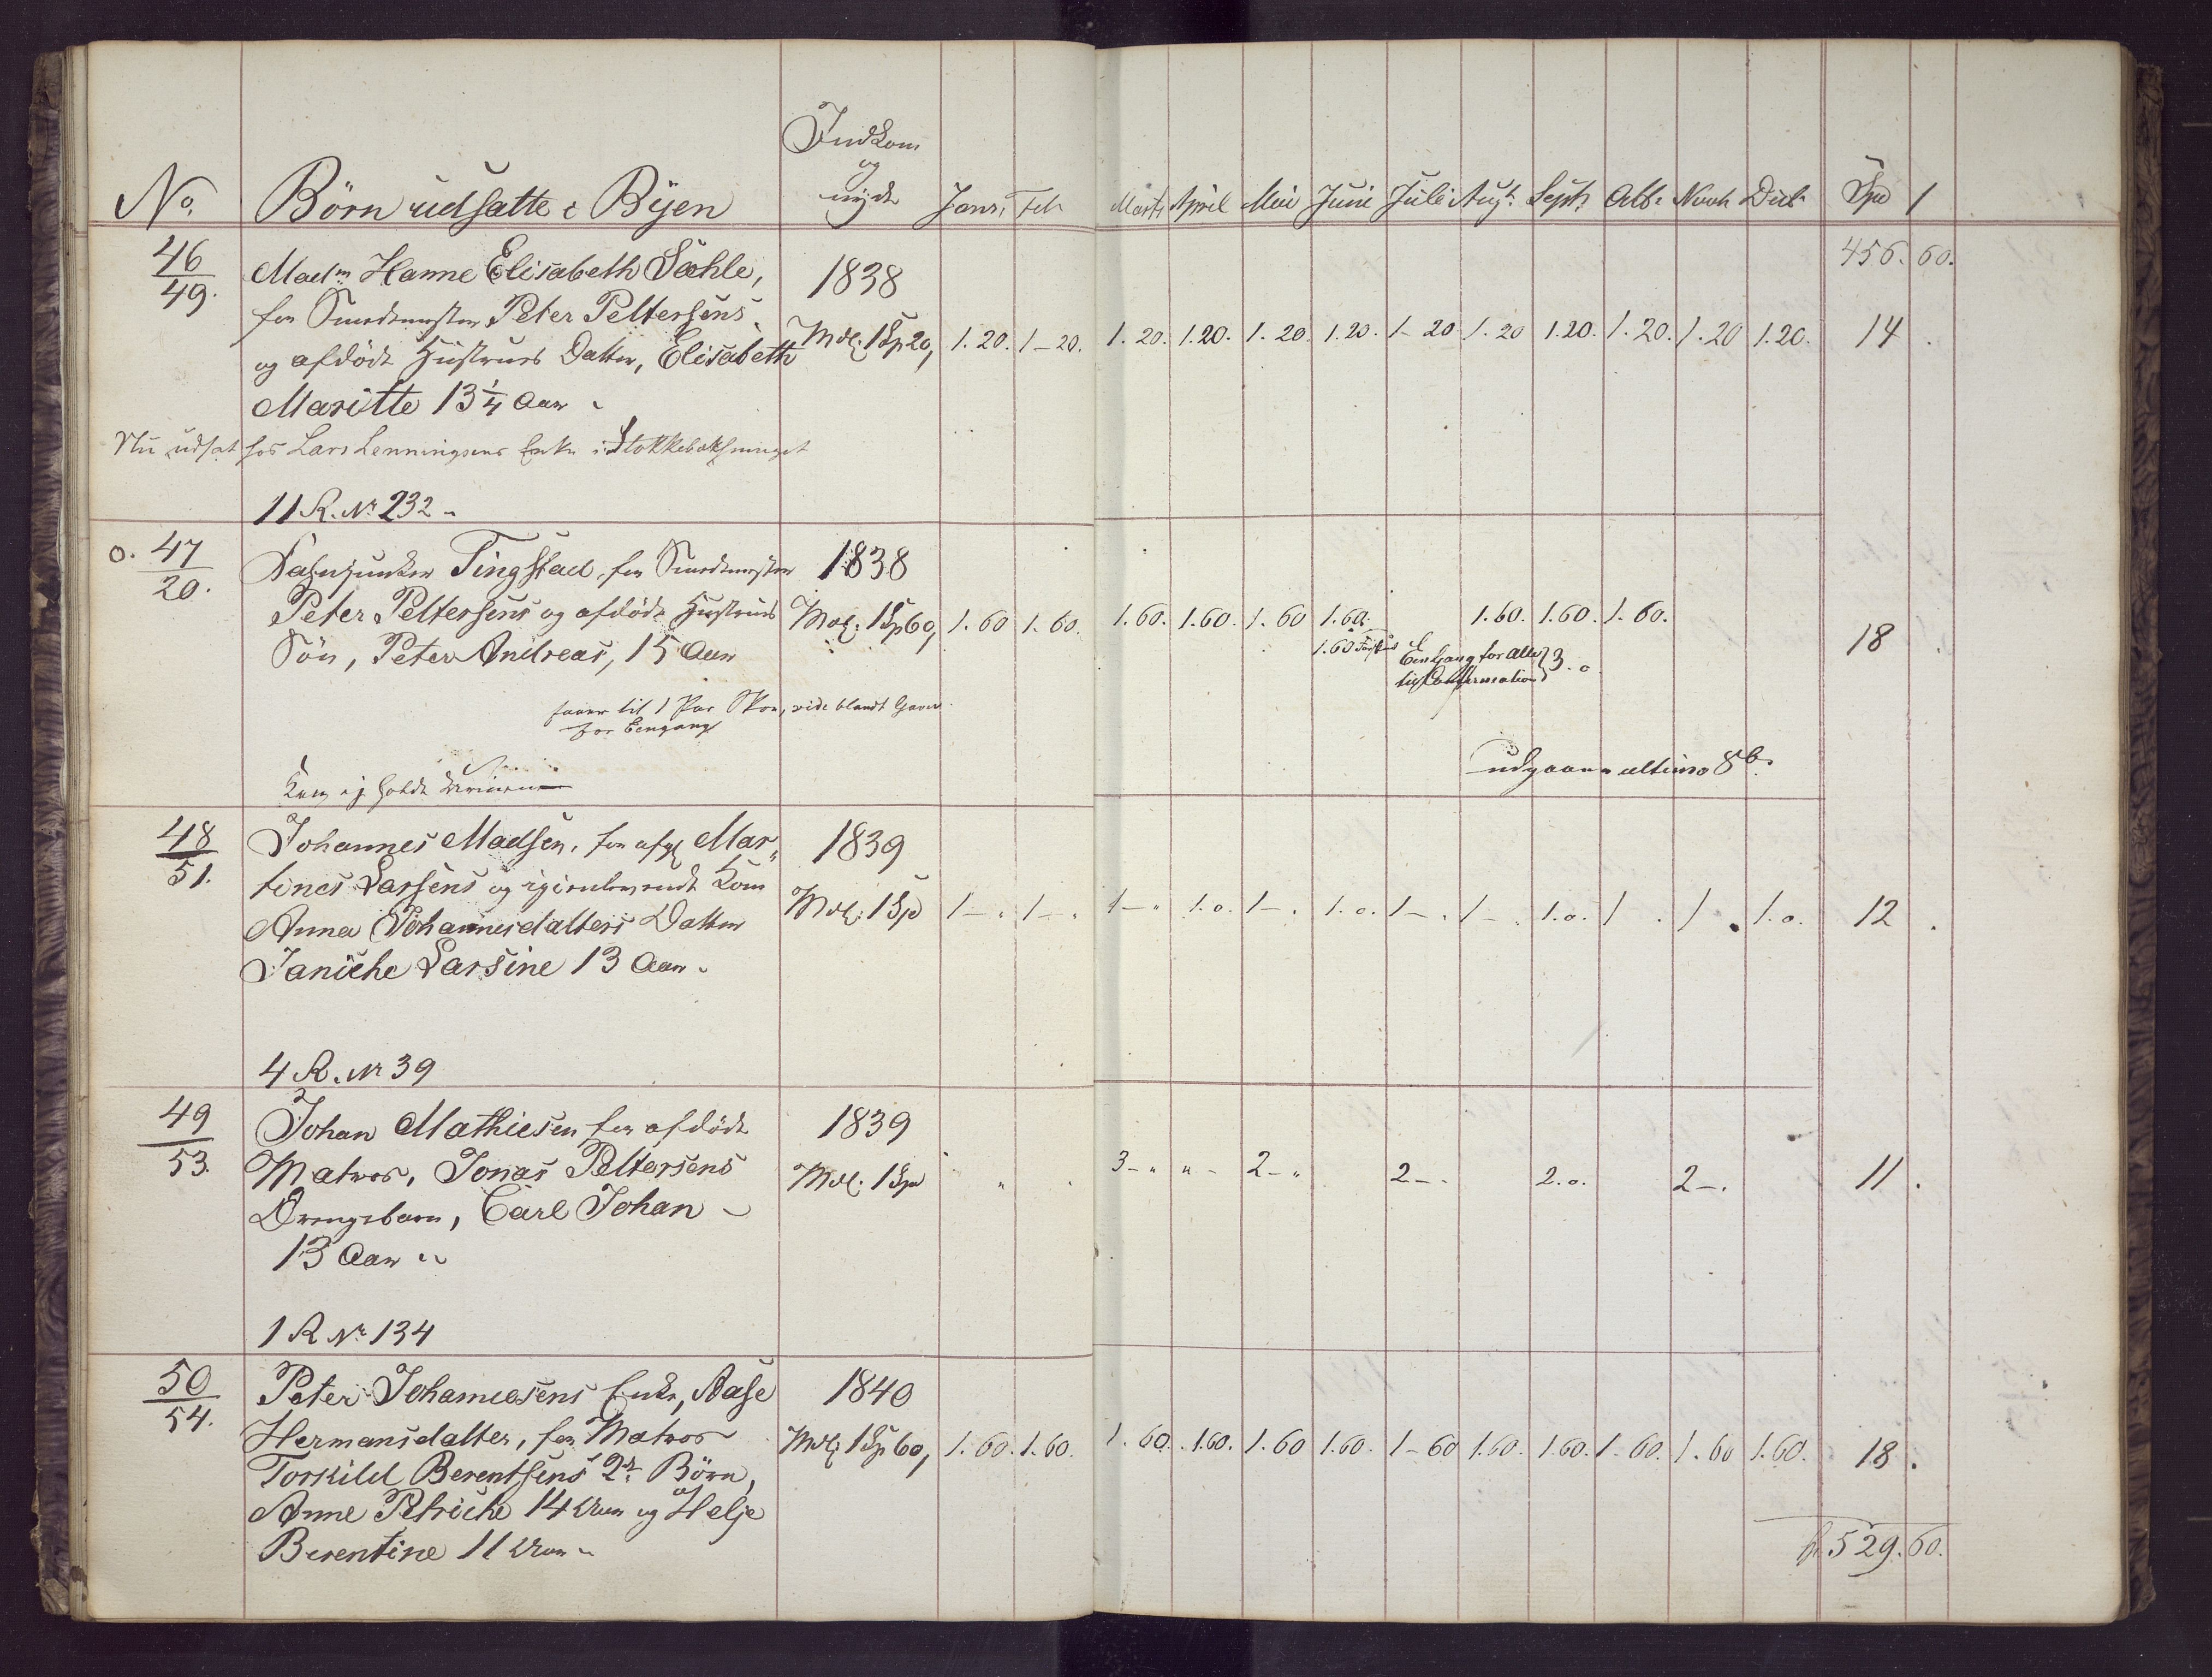 Indkom
og
nyde
No. Börn udsatte i Byen Janr. Feb. Marts April Mai Juni Juli Augt. Septr. Octbr. Novbr. Decbr. Spd
456. 60.
46
49.
Madm Hanne Elisabeth Sæhle, 1838
for Smedemester Peter Pettersens
og afdöde Hustrues Datter, Elisabeth Mdl. 1 Sp 20, 1.20. 1-20. 1.20. 1.20. 1.20. 1.20. 1-20 1.20 1.20. 1.20. 1.20 1.20. 14 .
Maritte 13 1/4 Aar
Nu udsat hos Lars Lenningsens Enke i
11 R. No 232
o. 47
20.
Fahnjunker Tingstad, for Smedemester 1838
Peter Pettersens og afdöde Hustrues Mdl. 1 Sp 60, 1.60 1.60. 1.60. 1.60. 1.60 1.60. 1.60. 1.60. 1.60. 18 .
Sön, Peter Andreas, 15 Aar 1.60
Een Gang for Alle
til Confirmation } 3.0
faaer til 1 Par Skoe, vide blandt Gaver
for Eengang
udgaaer ultimo 8b.
Kan ej holde
48
51.
Johannes Madsen, for afg. Mar- 1839
tines Larsens og igjenlevende Kone
Anna Johannesdatters Datter Mdl. 1 Spd 1-. 1-. 1-" 1.0. 1-. 1.0. 1-. 1-. 1.0. 1 . 1 . 1.0. 12 .
Janiche Larsine 13 Aar
4 R. No 39
49
53.
Johan Mathiesen for afdöde 1839
Matros, Jonas Pettersens Mdl. 1 Spd " 3-" "- 2-" 2-. 2.0. 2-. 11 .
Drengebarn, Carl Johan
13 Aar
1 R No 134
50
54.
Peter Johannesens Enke, Aase 1840
Hermansdatter, for Matros Mdl. 1 Sp 60, 1.60. 1.60. 1.60. 1.60. 1.60 1.60. 1-60 1.60. 1.60. 1-60. 1.60 1.60. 18 .
Torkild Berentsens 2de Börn,
Anne Petriche 14 Aar og Helje
Berentine 11 Aar
529. 60.